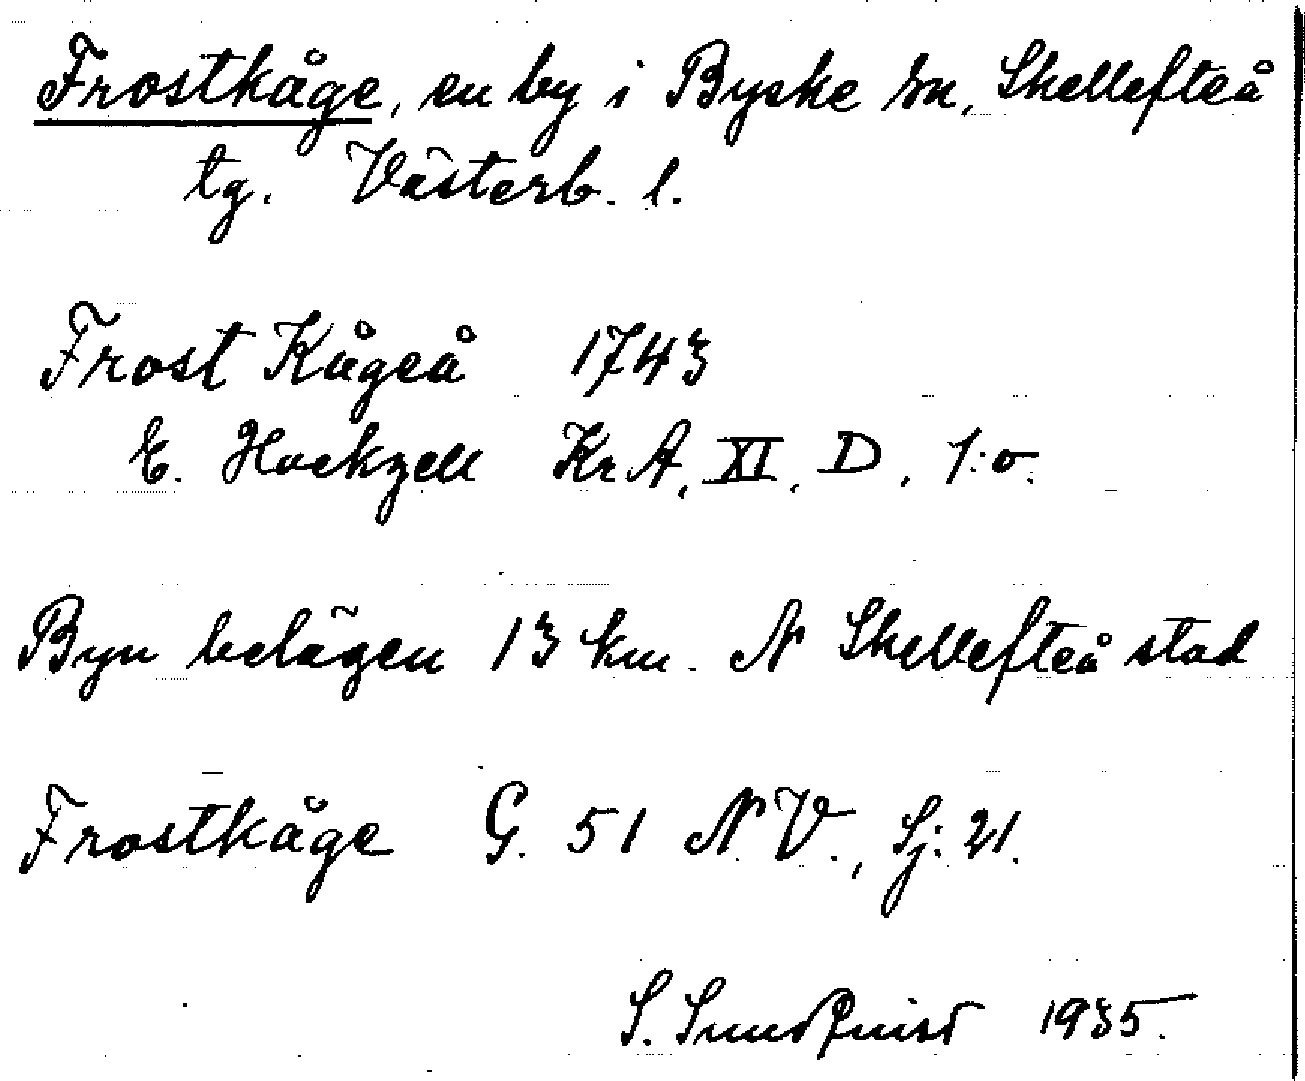 Frostkåge, en by i Byske sn, Skellefteå
tg. Västerb. l.
Frost Kågeå 1743
E. Hackzell Kr A, XI, D, 1:o.
Byn belägen 13 km. N Skellefteå stad
Frostkåge G. 51 N V., Sj: 21.
S. Sundquist 1935.